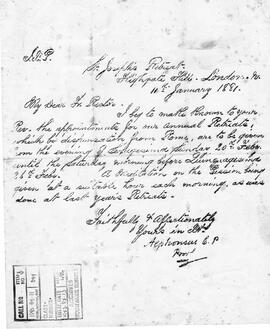 J.X.P.
St. Joseph's Retreat
Highgate Hill - London. N.
10th January 1881.
My Dear Fr. Rector.
I beg to make known to your
Rev. the appointments for our Annual Retreats,
which by dispensation from Rome, are to be given
from the evening of Sunday 20th Feby.
until the Saturday morning before Quinquagesima
26th Feby. A Meditation on the Passion being
given at a suitable hour each morning, as was
done at last year's Retreats.
Faithfully & Affectionately
Yours in
Alphonsus C.P.
Provl.
CALL NO